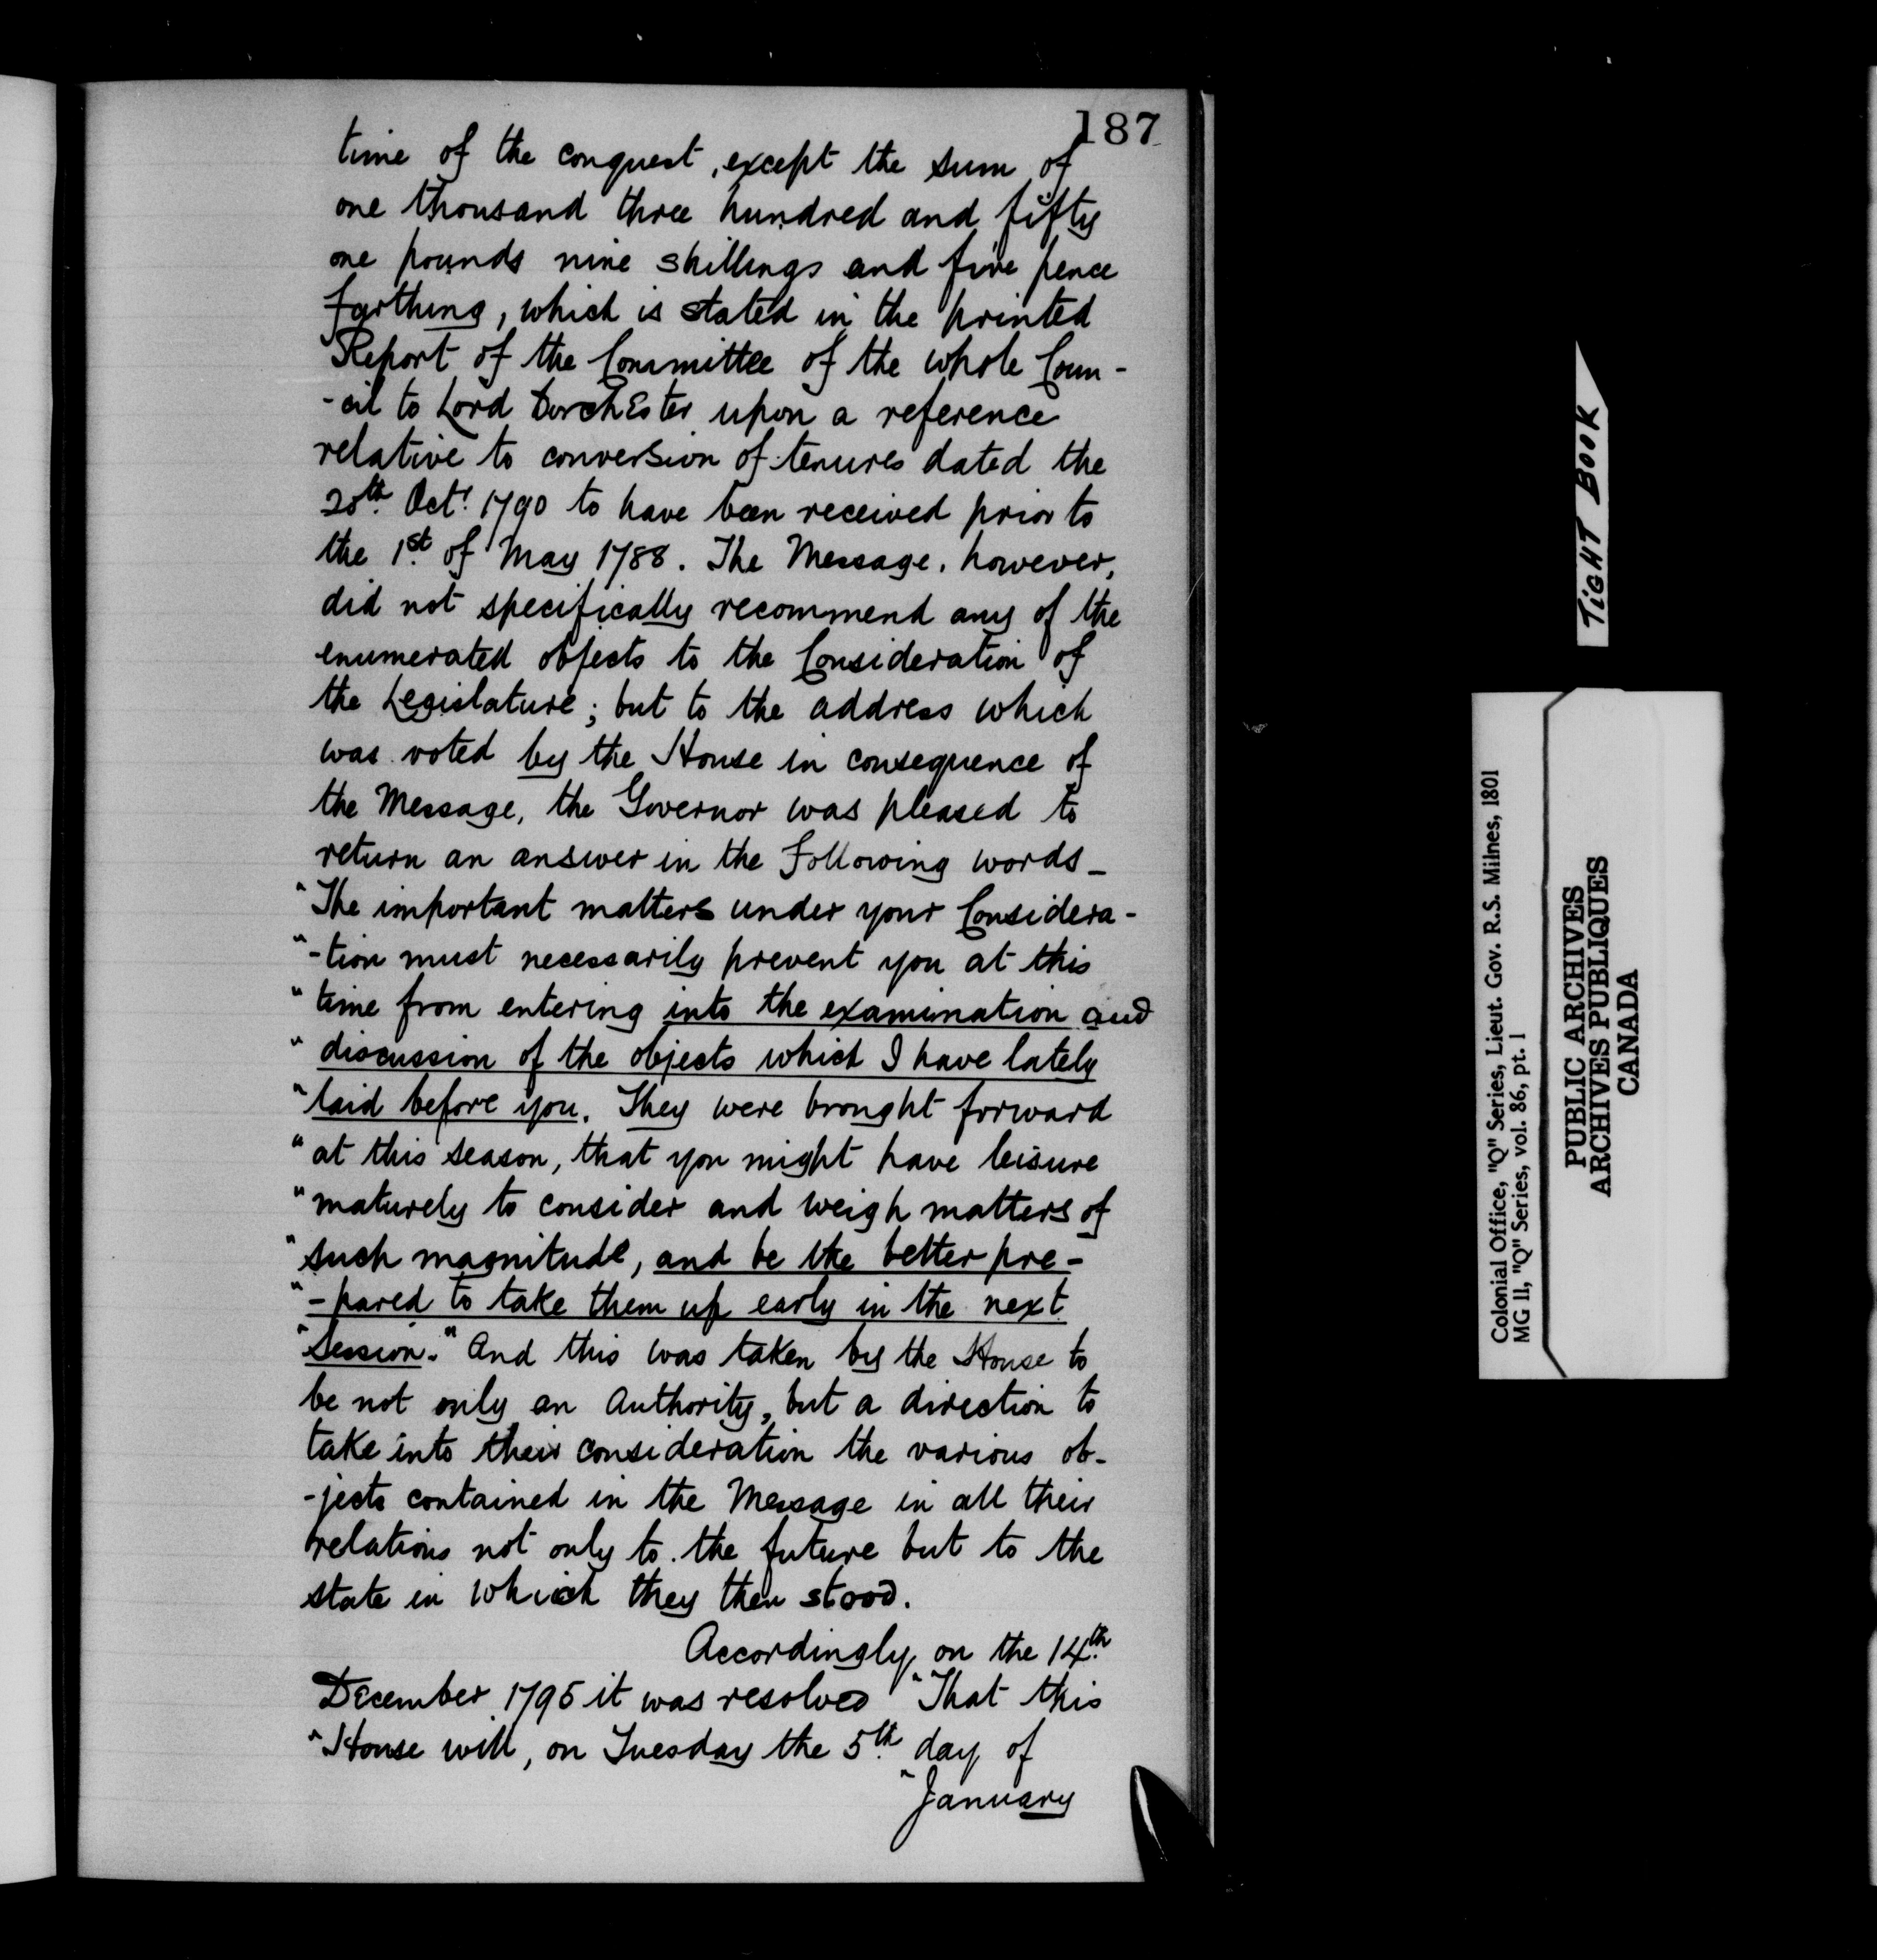 187
time of the conquest, except the sum of
one thousand three hundred and fifty
one pounds nine shillings and five pence
farthing, which is stated in the printed
Report of the Committee of the whole Coun-
-cil to Lord Dorchester upon a reference
relative to conversion of tenures dated the
20th Octr 1790 to have been received prior to
the 1st of May 1788. The Message, however,
did not specifically recommend any of the
enumerated objects to the Consideration of
the Legislature; but to the address which
was voted by the House in consequence of
the Message, the Governor was pleased to
return an answer in the following words_
"The important matters under your Considera-
"-tion must necessarily prevent you at this
"time from entering into the examination and
"discussion of the objects which I have lately
"laid before you. They were brought forward
"at this season, that you might have leisure
"maturely to consider and weigh matters of
"such magnitude, and be the better pre-
"-pared to take them up early in the next
"Session." And this was taken by the House to
be not only an Authority, but a direction to
take into their consideration the various ob-
-jects contained in the Message in all their
relations not only to the future but to the
state in which they then stood.
Accordingly on the 14th
December 1795 it was resolved "That this
"House will, on Tuesday the 5th day of
"January
TIGHT BOOK
Colonial Office, "Q" Series, Lieut. Gov. R.S. Milnes, 1801
MG 11, "Q" Series, vol. 86, pt. 1
PUBLIC ARCHIVES
ARCHIVES PUBLIQUES
CANADA